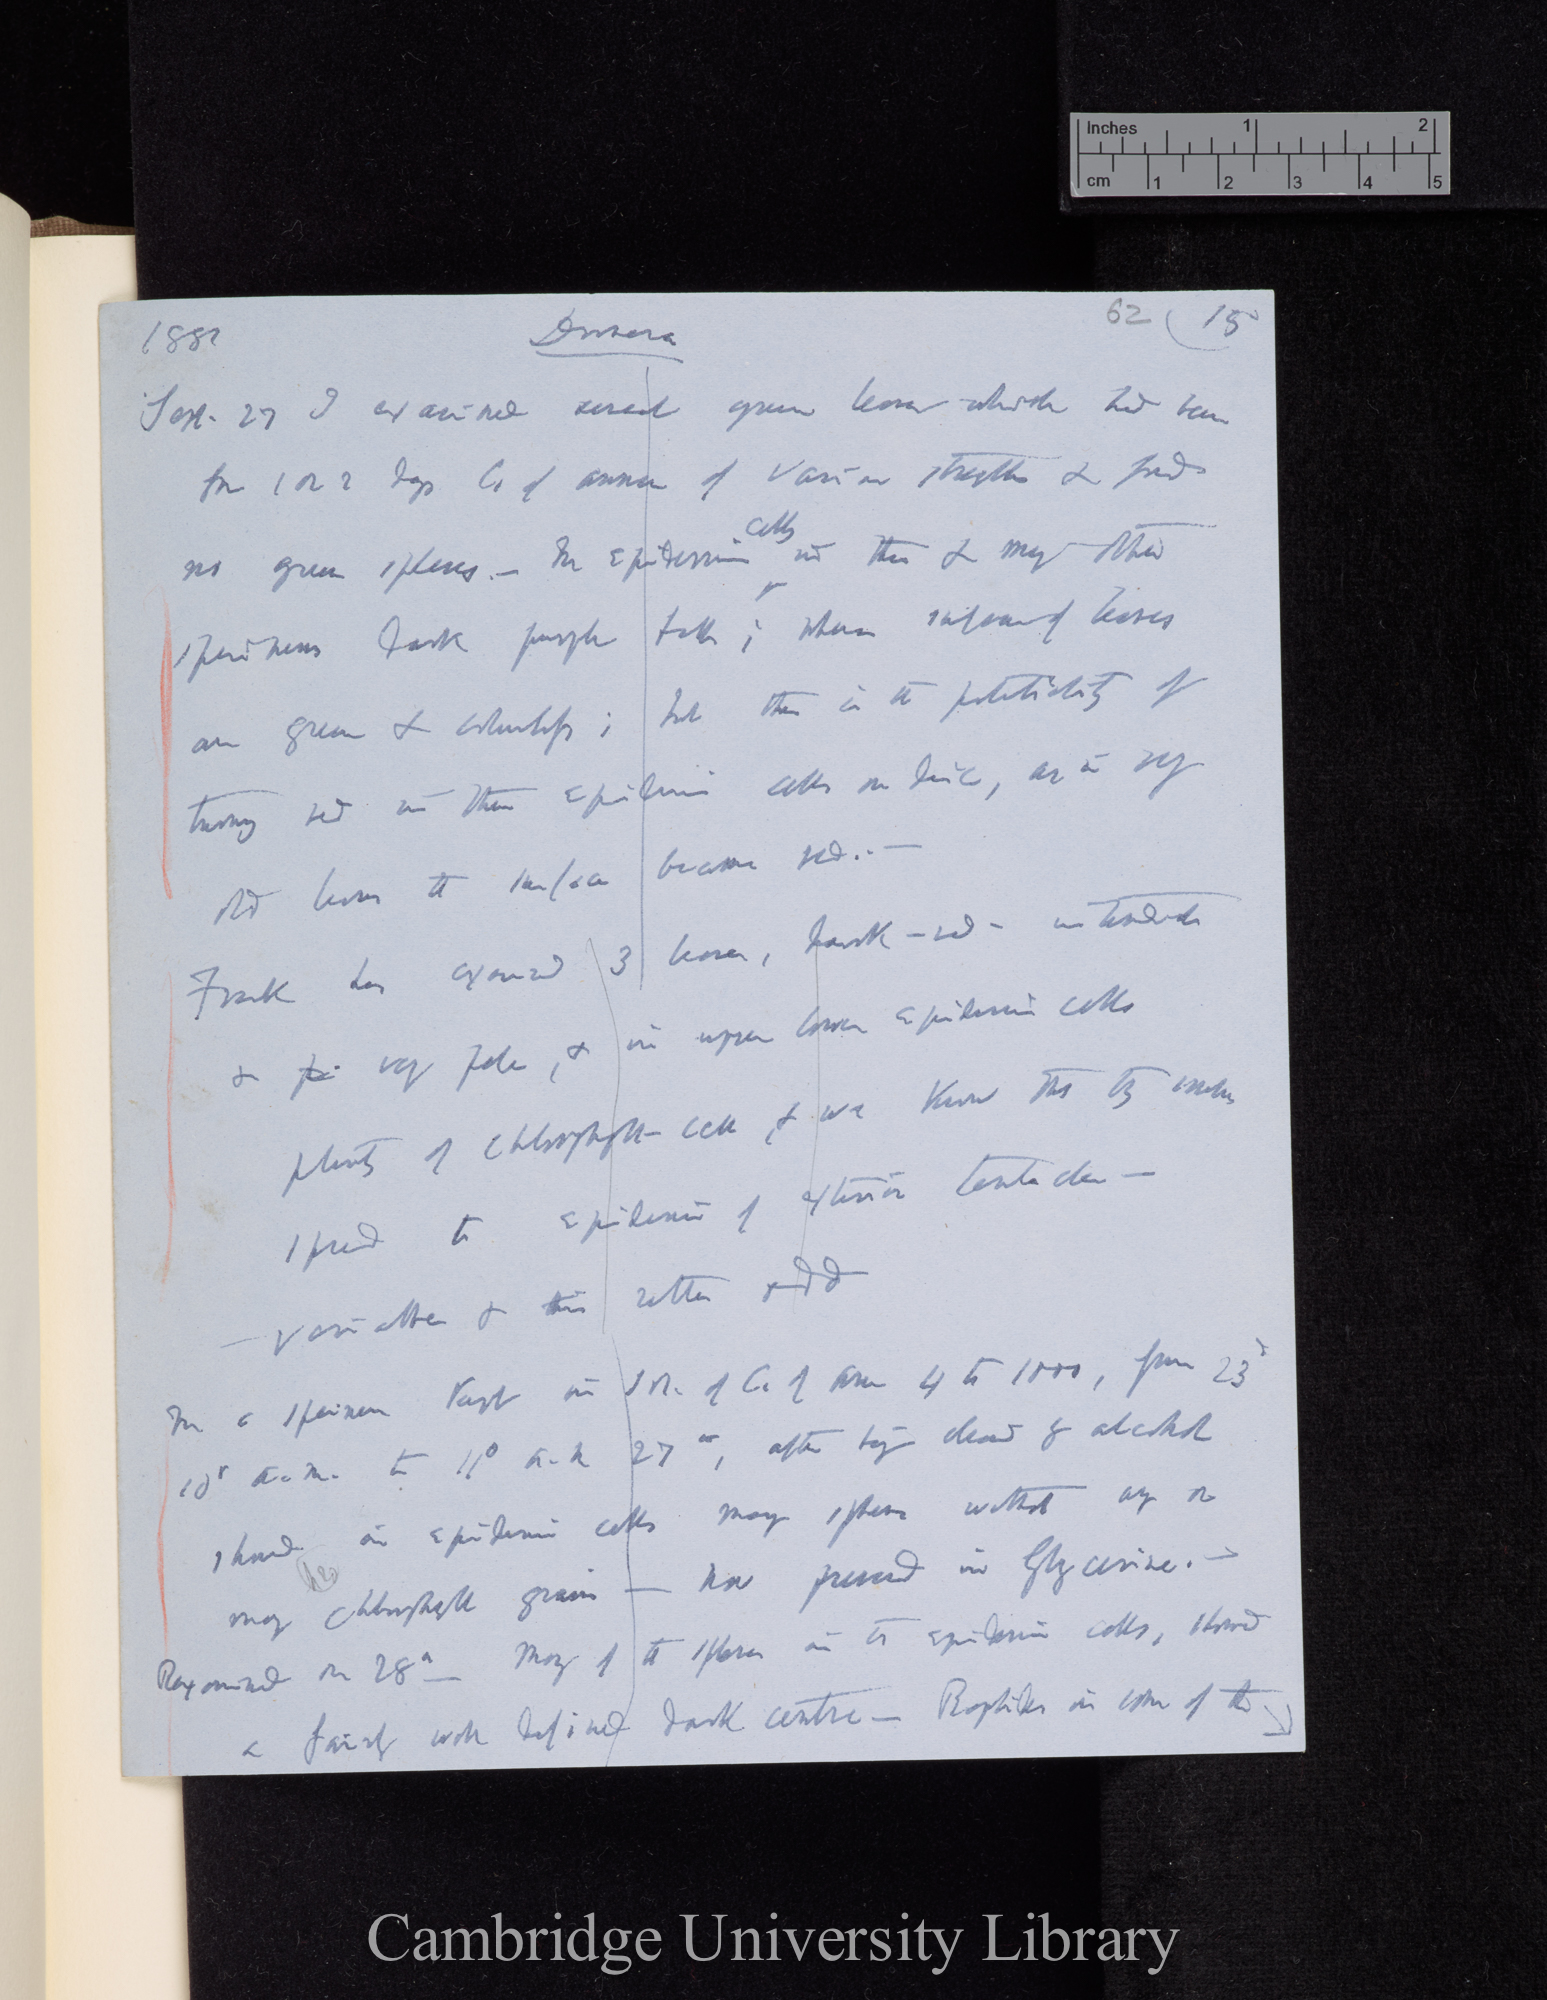 Inches 1 2
cm 1 2 3 4 5
1881 Drosera 62 (15
Sept. 27 I examined several green leaves which had been
for 1 or 2 days C. of ammon of various strengths & find
no green spheres. — In epidermic cells in these & many other
specimens dark purple
are green & colourless; but there is the potentiality of
turning red in these epidermic cells on disc, as in very
old leaves the surface becomes red. —
Frank has examined 3 leaves, dark-red- in tentacles
& very pale, & in upper lower epidermic cells
plenty of chlorophyll- cells, & we know this
spread to epidermis of exterior tentacles —
— variation & this rather odd
In a specimen kept in sol. of C. of Amm 4 to 1000, from 23d
10° a.m. to 11° a.m 27th, after being cleared by alcohol
showed in epidermic cells many spheres without any or
many chlorophyll grains — now preserved in Glycerine. —
Rexamined on 28th — Many of the spheres in the epidermic cells, showed
a fairly well defined dark centre — Raphides in some of the
Cambridge University Library